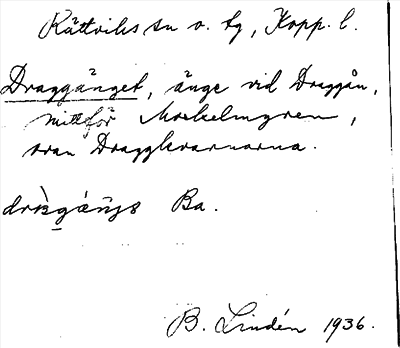 Rättviks sn o. tg, Kopp. l.
Draggänget, änge vid Draggån,
mittför Morkelmyren,
ovan Draggkvarnarna.
Ba.
B. Lindén 1936.